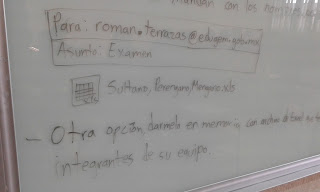 con los
Para: roman.terrazas@edugem.gob.mx
Asunto: Examen
xls
Sultano, Perengano, Mengano.xls
- Otra opción, darmelo en memoria, con archivo de Excel
integrantes de su equipo.